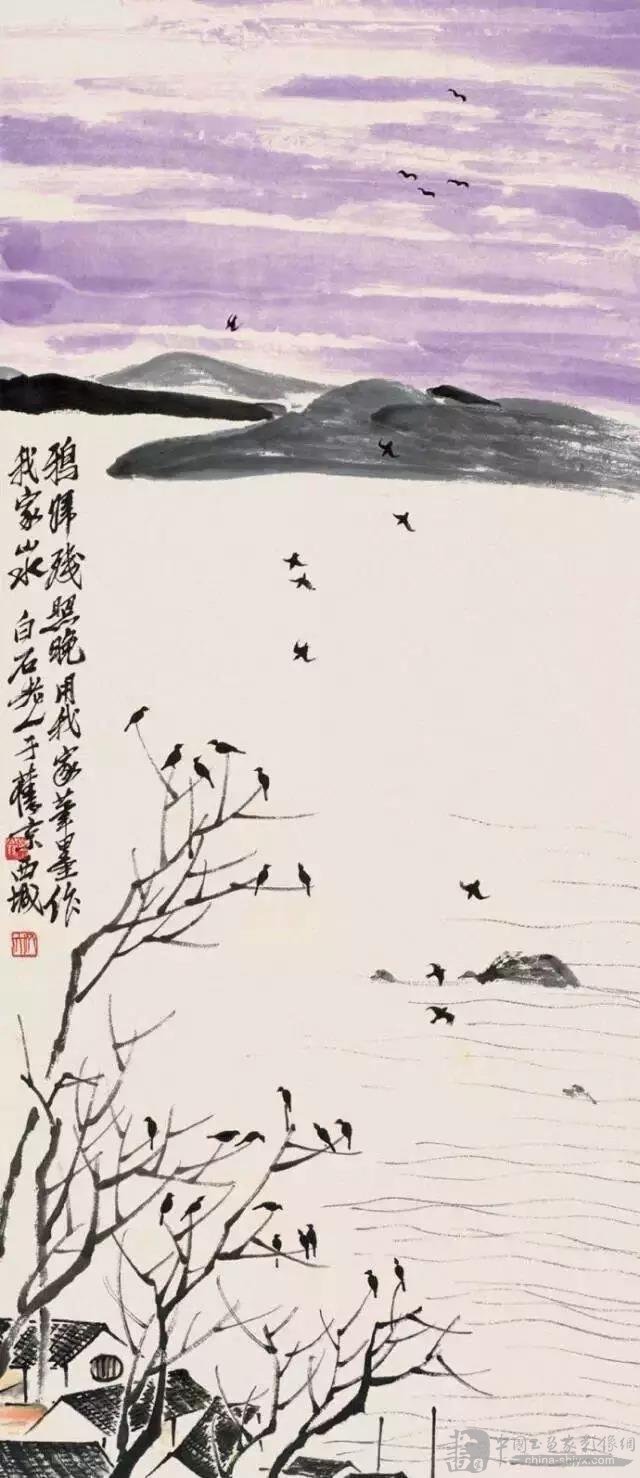 鴉歸殘照晚用我家筆墨作
我家山水 白石老人于舊京西城
中國书画家影像網
china-shjyx.com